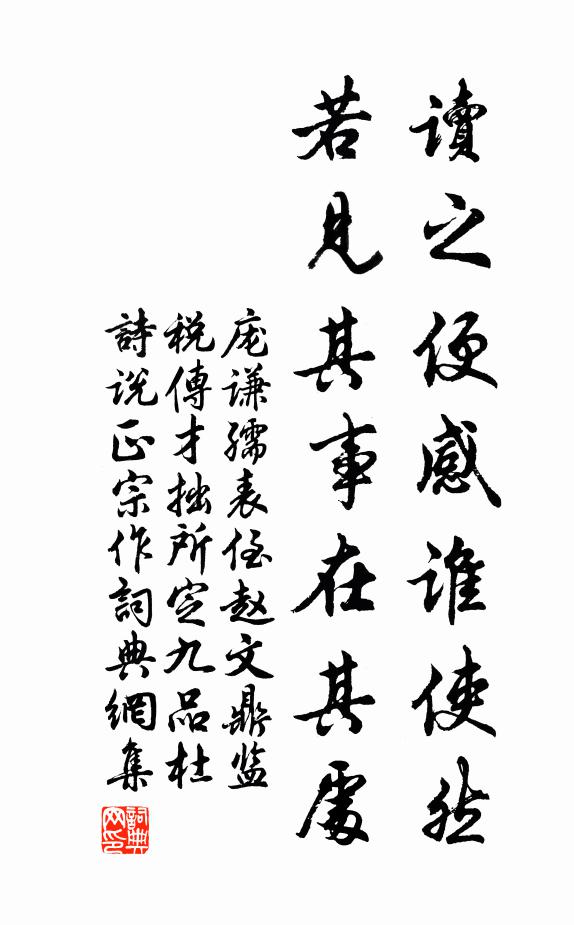 讀之便感誰使然
若見其事在其處
庞謙孺表侄赵文鼎监
税傳才拙所定九品杜
詩说正宗作詞典網集
詞典
网印